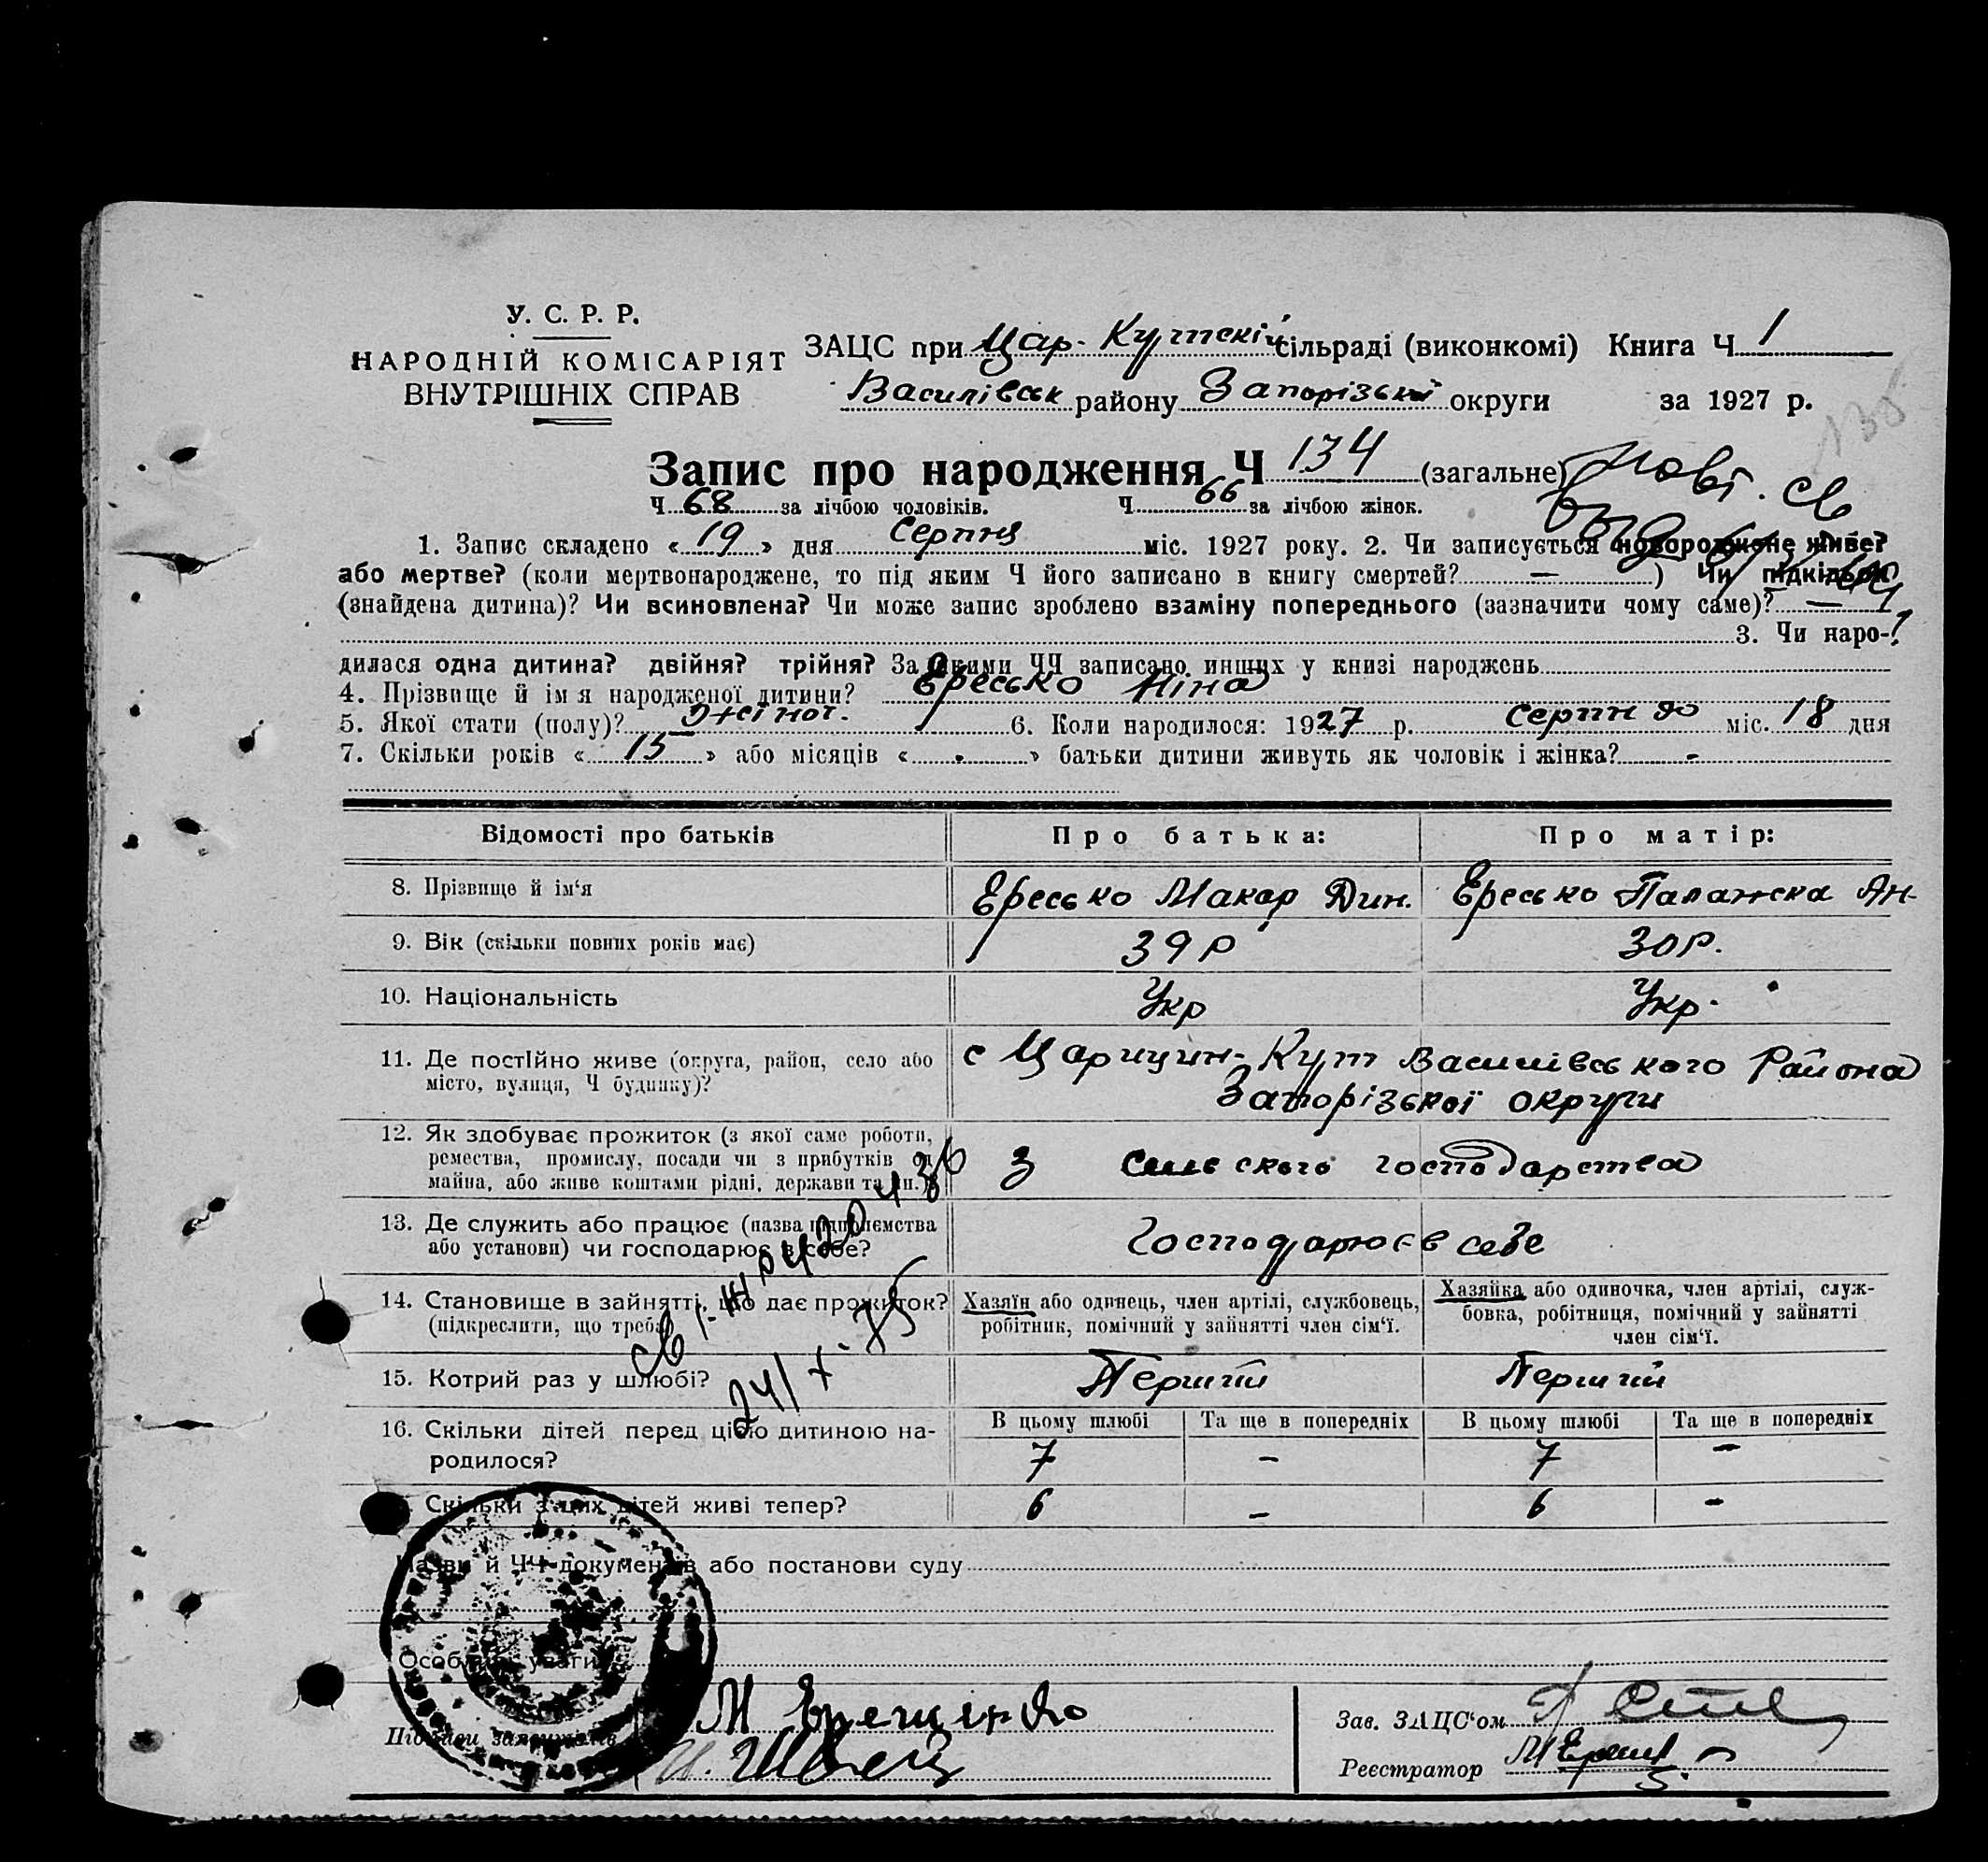 У. С. Р. Р.
НАРОДНІЙ КОМІСАРІЯТ
ВНУТРІШНІХ СПРАВ
ЗАЦС при Цар. Кутскій сільраді (виконкомі) Книга Ч 1
Василівськ району Запорізької округи за 1927 р.
Запис про народження Ч 134 (загальне) Повт. св
Ч 68 за лічбою чоловіків. Ч 66 за лічбою жінок.
1. Запис складено « 19 » дня Серпня міс. 1927 року. 2. Чи записується новороджене живе?
або мертве? (коли мертвонароджене, то під яким Ч його записано в книгу смертей? — ) Чи підкідьок
(знайдена дитина)? Чи всиновлена? Чи може запис зроблено взаміну попереднього (зазначити чому саме)? —
3. Чи наро-
дилася одна дитина? двійня? трійня? За якими ЧЧ записано инших у книзі народжень
4. Прізвище й ім я народженої дитини? Ересько Ніна
5. Якої стати (полу)? Жіноч. 6. Коли народилося: 1927 р. Серпндо міс. 18 дня
7. Скільки років « 15 » або місяців « . » батьки дитини живуть як чоловік і жінка? -
Відомості про батьків Про батька: Про матір:
8. Прізвище й ім‘я Ересько Макар Дим. Ересько Палажка Ан-
9. Вік (скільки повних років має) 39 р 30 р.
10. Національність Укр Укр.
11. Де постійно живе (округа, район, село або
місто, вулиця, Ч будинку)?
с Царицин-Кут Василівського Района
Запорізької округи
12. Як здобуває прожиток (з якої саме роботи,
ремества, промислу, посади чи з прибутків од
майна, або живе коштами рідні, держави та ин.)
З сильского господарства
13. Де служить або працює (назва підприємства
або установи) чи господарює в себе?
Господарює в себе
14. Становище в зайнятті, що дає прожиток?
(підкреслити, що треба)
Хазяїн або одинець, член артілі, службовець,
робітник, помічний у зайнятті член сім‘ї.
Хазяйка або одиночка, член артілі, служ-
бовка, робітниця, помічний у зайнятті
член сім‘ї.
15. Котрий раз у шлюбі? Перший Перший
16. Скільки дітей перед цією дитиною на-
родилося?
В цьому шлюбі Та ще в попередніх В цьому шлюбі Та ще в попередніх
7 - 7 -
Скільки з цих дітей живі тепер? 6 - 6 -
Назви й ЧЧ документів або постанови суду
Особливі уваги
Підписи заявників
М Ерещенко
И. Швец
Зав. ЗАЦС‘ом
Реєстратор